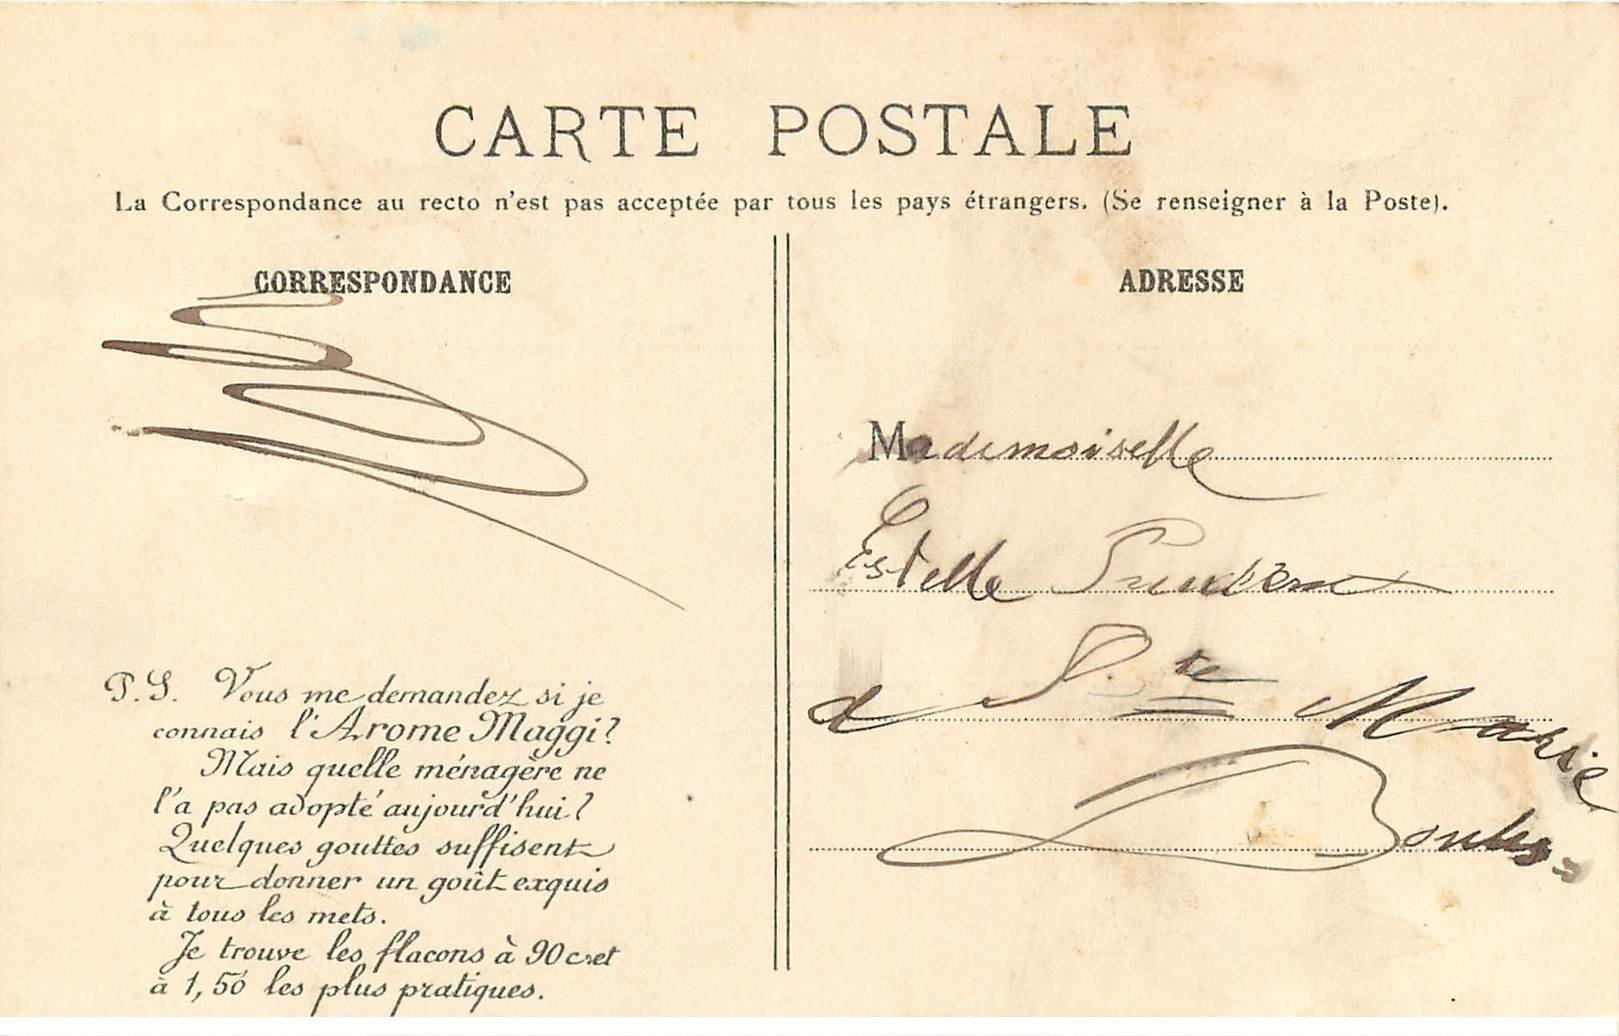 CARTE POSTALE
La Correspondance au recto n'est pas acceptée par tous les pays étrangers. (Se renseigner à la Poste).
CORRESPONDANCE
P.S. Vous me demandez si je
connais l'Arome Maggi?
Mais quelle ménagère ne
l'a pas adopté aujourd'hui?
Quelques gouttes suffisent
pour donner un goût exquis
à tous les mets.
Je trouve les flacons à 90c. et
à 1,50 les plus pratiques.
ADRESSE
Mademoiselle
Estelle
d Ste Marie